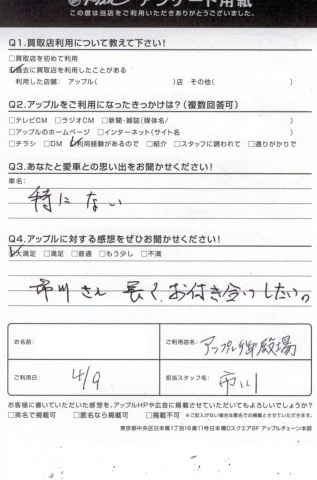 アンケート用紙
この度は当店をご利用いただきありがとうございました。
Q1.買取店利用について教えて下さい!
□買取店を初めて利用
☑過去に買取店を利用したことがある
利用した店舗: アップル( )店 その他( )
Q2.アップルをご利用になったきっかけは?(複数回答可)
□テレビCM □ラジオCM □新聞・雑誌(媒体名/ )
□アップルのホームページ □インターネット(サイト名 )
□チラシ □DM ☑利用経験があるので □紹介 □スタッフに誘われて □通りがかりで
Q3.あなたと愛車との思い出をお聞かせください!
車名:
特にない
Q4.アップルに対する感想をぜひお聞かせください!
☑大満足 □満足 □普通 □もう少し □不満
市川さん 長く、お付き合いしたい。
お名前:
ご利用店名: アップル御殿場
ご利用日: 4/9
担当スタッフ名: 市川
お客様に書いていただいた感想を、アップルHPや広告に掲載させていただいてもよろしいでしょうか?
□実名で掲載可 □匿名なら掲載可 □掲載不可 ※ご記入がない場合は匿名での掲載とさせていただきます。
東京都中央区日本橋1丁目16番11号日本橋Dスクエア9F アップルチェーン本部